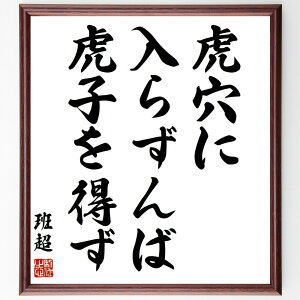 虎穴に
入らずんば
虎子を得ず
班超